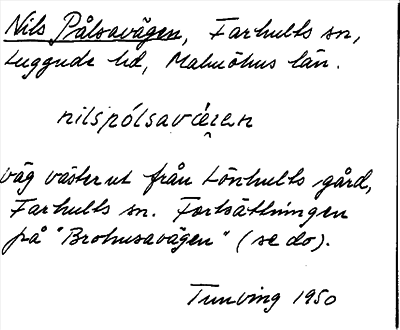 Nils Pålsavägen, Farhults sn,
Luggude hd, Malmöhus län.
nilspólsavɛ́ʒɛn
väg väster ut från Lönhults gård,
Farhults sn. Fortsättningen
på "Brohusavägen" (se do).
Tunving 1950